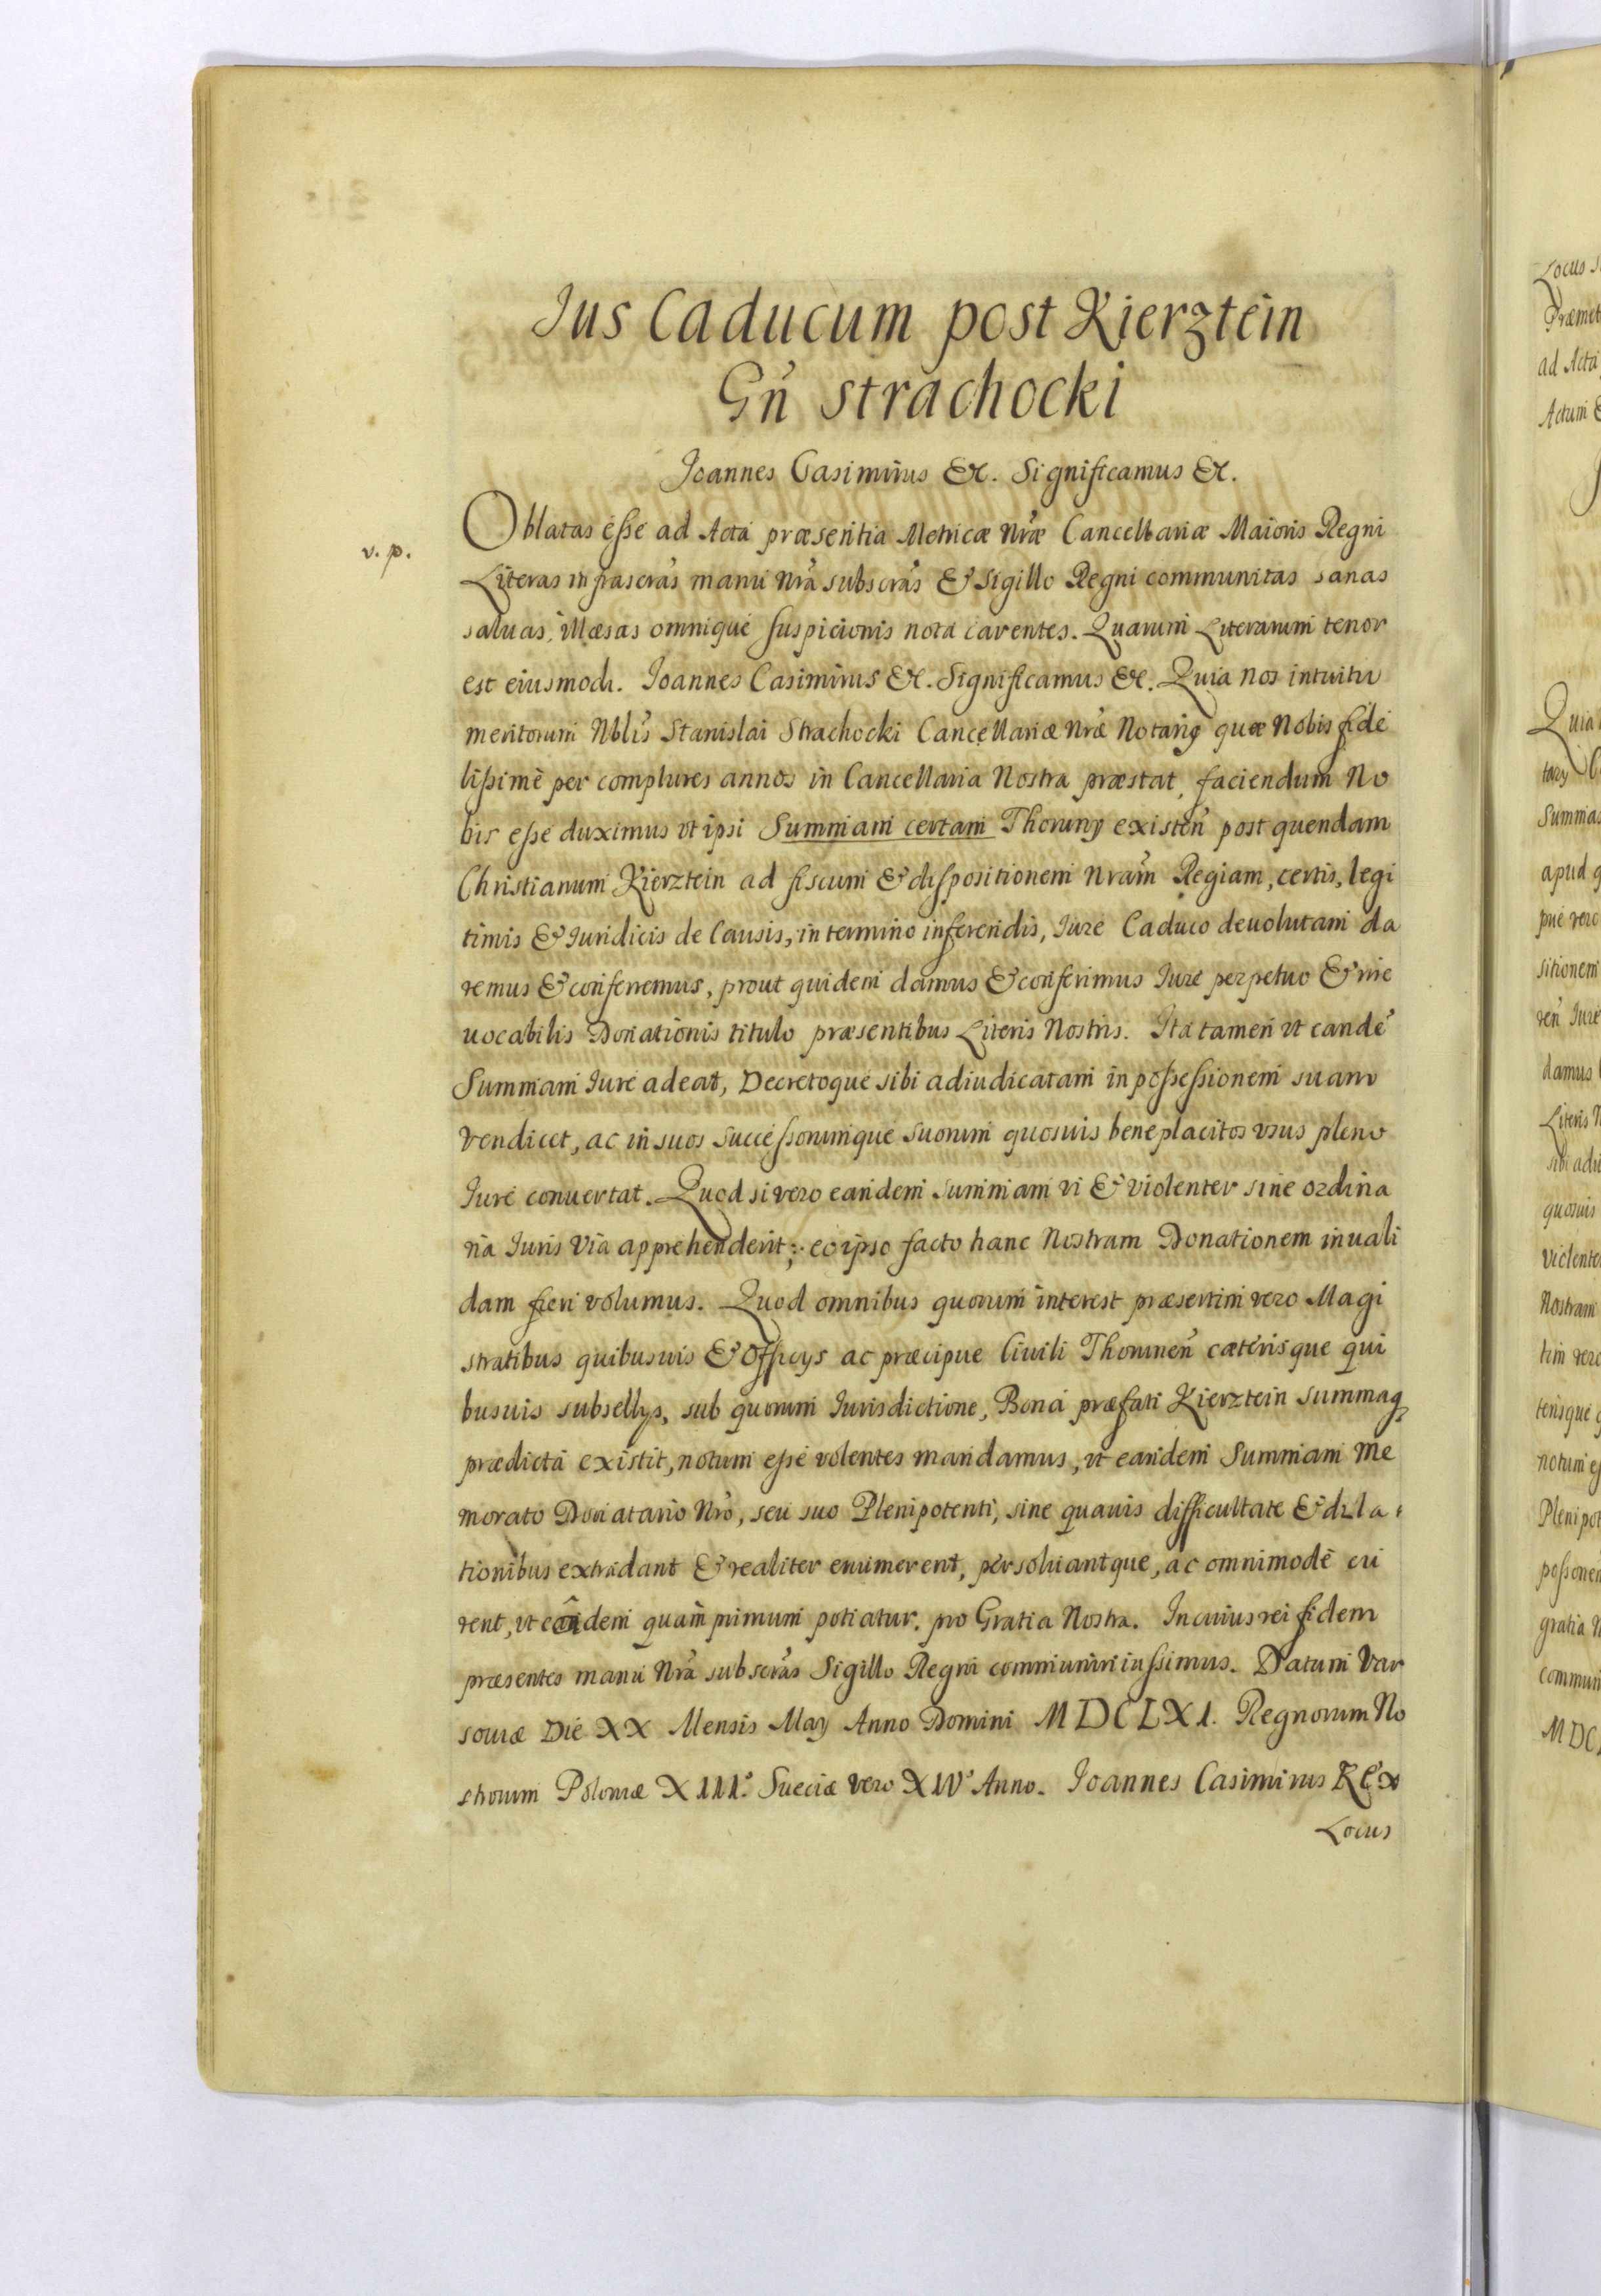 Ius Caducum post Kierztein
Gn̄ Strachocki
Joannes Casimirus &c. Significamus &c.
v. p.
Oblatas esse ad Acta præsentia Metricæ Nr̄æ Cancellariæ Maioris Regni
Literas infrascr̄as manu Nr̄a subscr̄as & Sigillo Regni communitas sanas
saluas, illæsas omnique suspicionis nota carentes. Quarum Literarum tenor
est eiusmodi. Joannes Casimirus &c. Significamus &c. Quia Nos intuitu
meritorum Nblis̄ Stanislai Strachocki Cancellariæ Nr̄æ Notarij quæ Nobis fide
lissimè per complures annos in Cancellaria Nostra præstat, faciendum No
bis esse duximus vt ipsi Summam certam Thoruny existen̄ post quendam
Christianum Kierztein ad fiscum & dispositionem Nram̄ Regiam, certis, legi
timis & Iuridicis de Causis, in termino inferendis, Iure Caduco deuolutam da
remus & conferremus, prout quidem damus & conferimus Iure perpetuo & irre
uocabilis Donationis titulo præsentibus Literis Nostris. Ita tamen vt eandē
Summam Iure adeat, Decretoque sibi adiudicatam in possessionem suam
vendicet, ac in suos successorumque suorum quosuis beneplacitos vsus pleno
Iure conuertat. Quod si vero eandem summam vi & violenter sine ordina
ria Iuris Via apprehenderit: eo ipso facto hanc Nostram Donationem inuali
dam fieri volumus. Quod omnibus quorum interest præsertim vero Magi
stratibus quibusuis & Officys ac præcipue Ciuili Thorunen̄ cæterisque qui
busuis subsellys, sub quorum Iurisdictione, Bona præfati Kierztein summaq
prædicta existit, notum esse volentes mandamus, vt eandem Summam me
morato Donatario Nrō, seu suo Plenipotenti, sine quauis difficultate & dila
tionibus extradant & realiter enumerent, persoluantque, ac omnimodè cu
rent, vt eâdem quam primum potiatur. pro Gratia Nostra. In cuius rei fidem
præsentes manu Nr̄a subscr̄as Sigillo Regni communiri iussimus. Datum Var
souiæ Die XX Mensis May Anno Domini MDCLXI. Regnorum No
strorum Poloniæ XIII.° Sueciæ vero XIV° Anno. Joannes Casimirus Rex
Locus